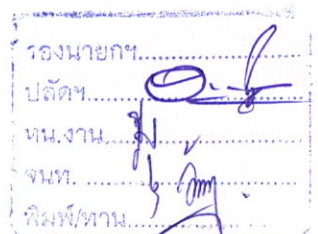 รองนายกฯ.....................
ปลัดฯ.....................
หน.งาน.....................
จนท......................
พิมพ์/ทาน.....................